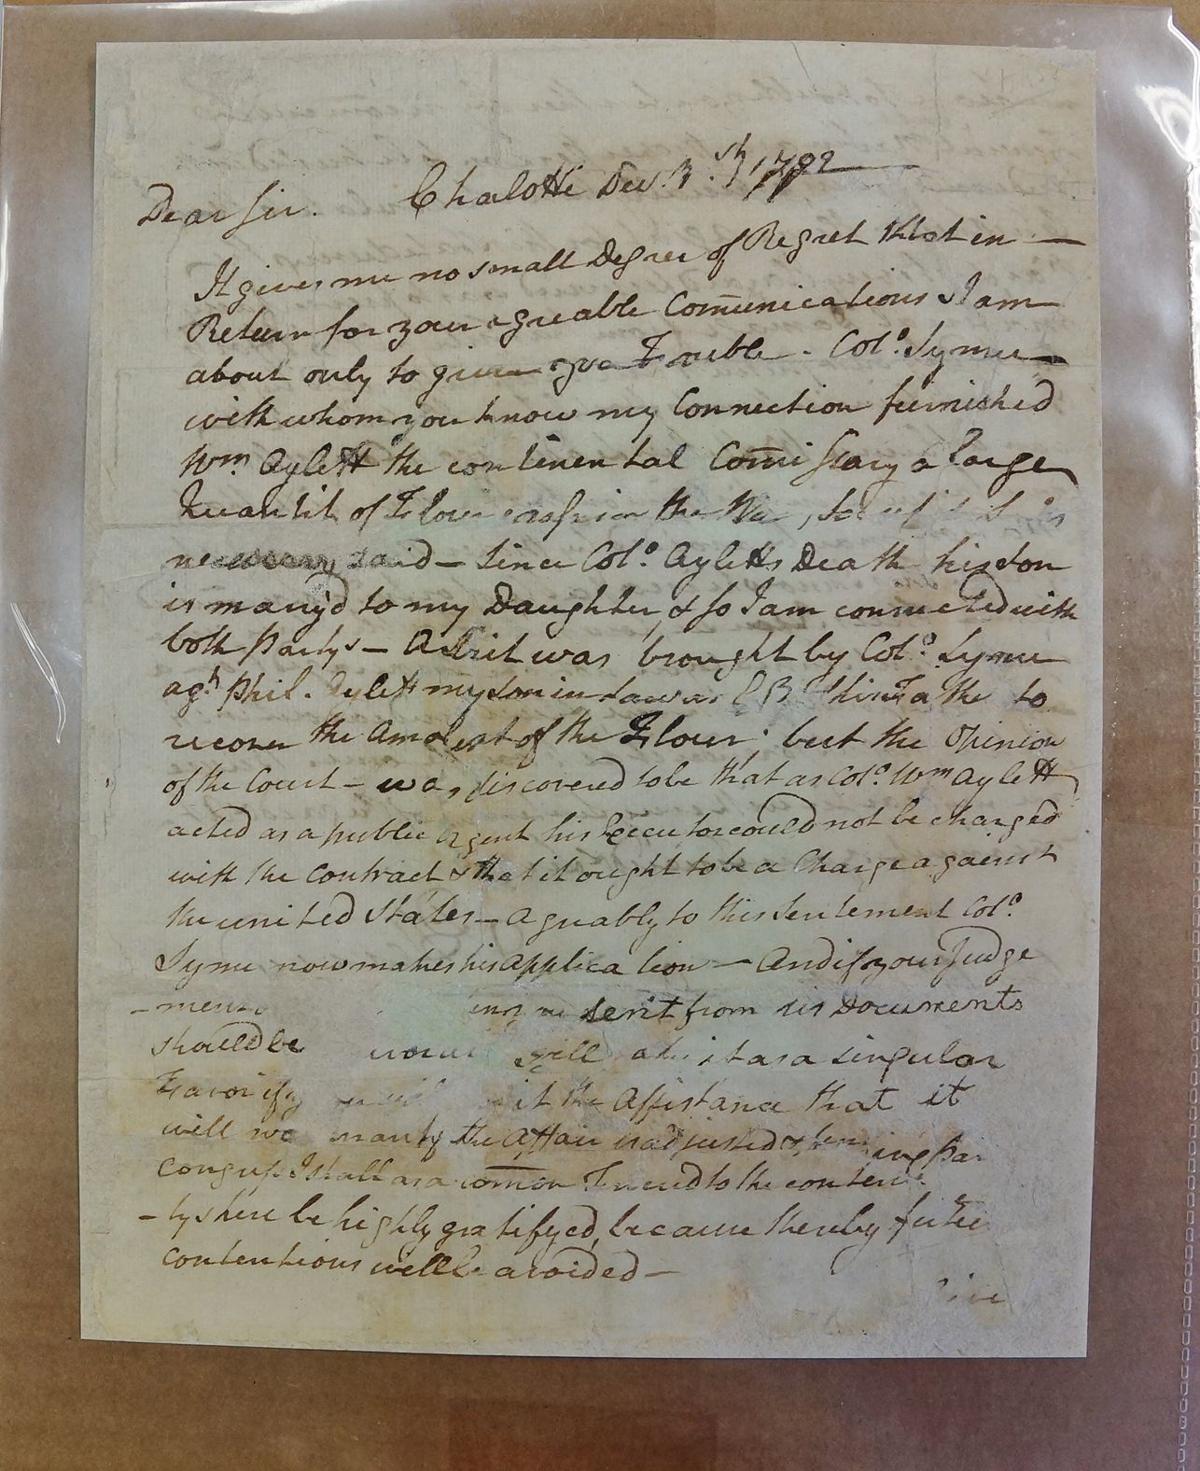 Charlotte Dec. 3.th 1792
Dear Sir.
It gives me no small Degree of Regret that in —
Return for your agreable Com̄unications I am
about only to give you Trouble. Colo. Syme —
with whom you know my Connection furnished
Wm. Aylett the continental Com̄issary a large
Quantit of Flour in the
necessary said — Since Colo. Ayletts Death his son
is marry'd to my Daughter, & so I am connected with
both Partys — A Suit was brought by Colo. Syme
agt. Phil. Aylett my son in Law as to
recover the Amount of the Flour; but the Opinion
of the Court — was discovered to be that as Colo. Wm Aylett
acted as a public Agent his Executor could not be charged
with the Contract & that it ought to be a Charge against
the united States — Agreably to this Sentement Colo.
Syme now makes his Application — And if your Judge
-ment sent from his Documents
should be it as a singular
Favor if the Assistance that it
will the Affair is adjusted &
Congress I shall as a com̄on Friend to the conten
-tys here be highly gratifyed, because thereby future
contentions will be avoided —